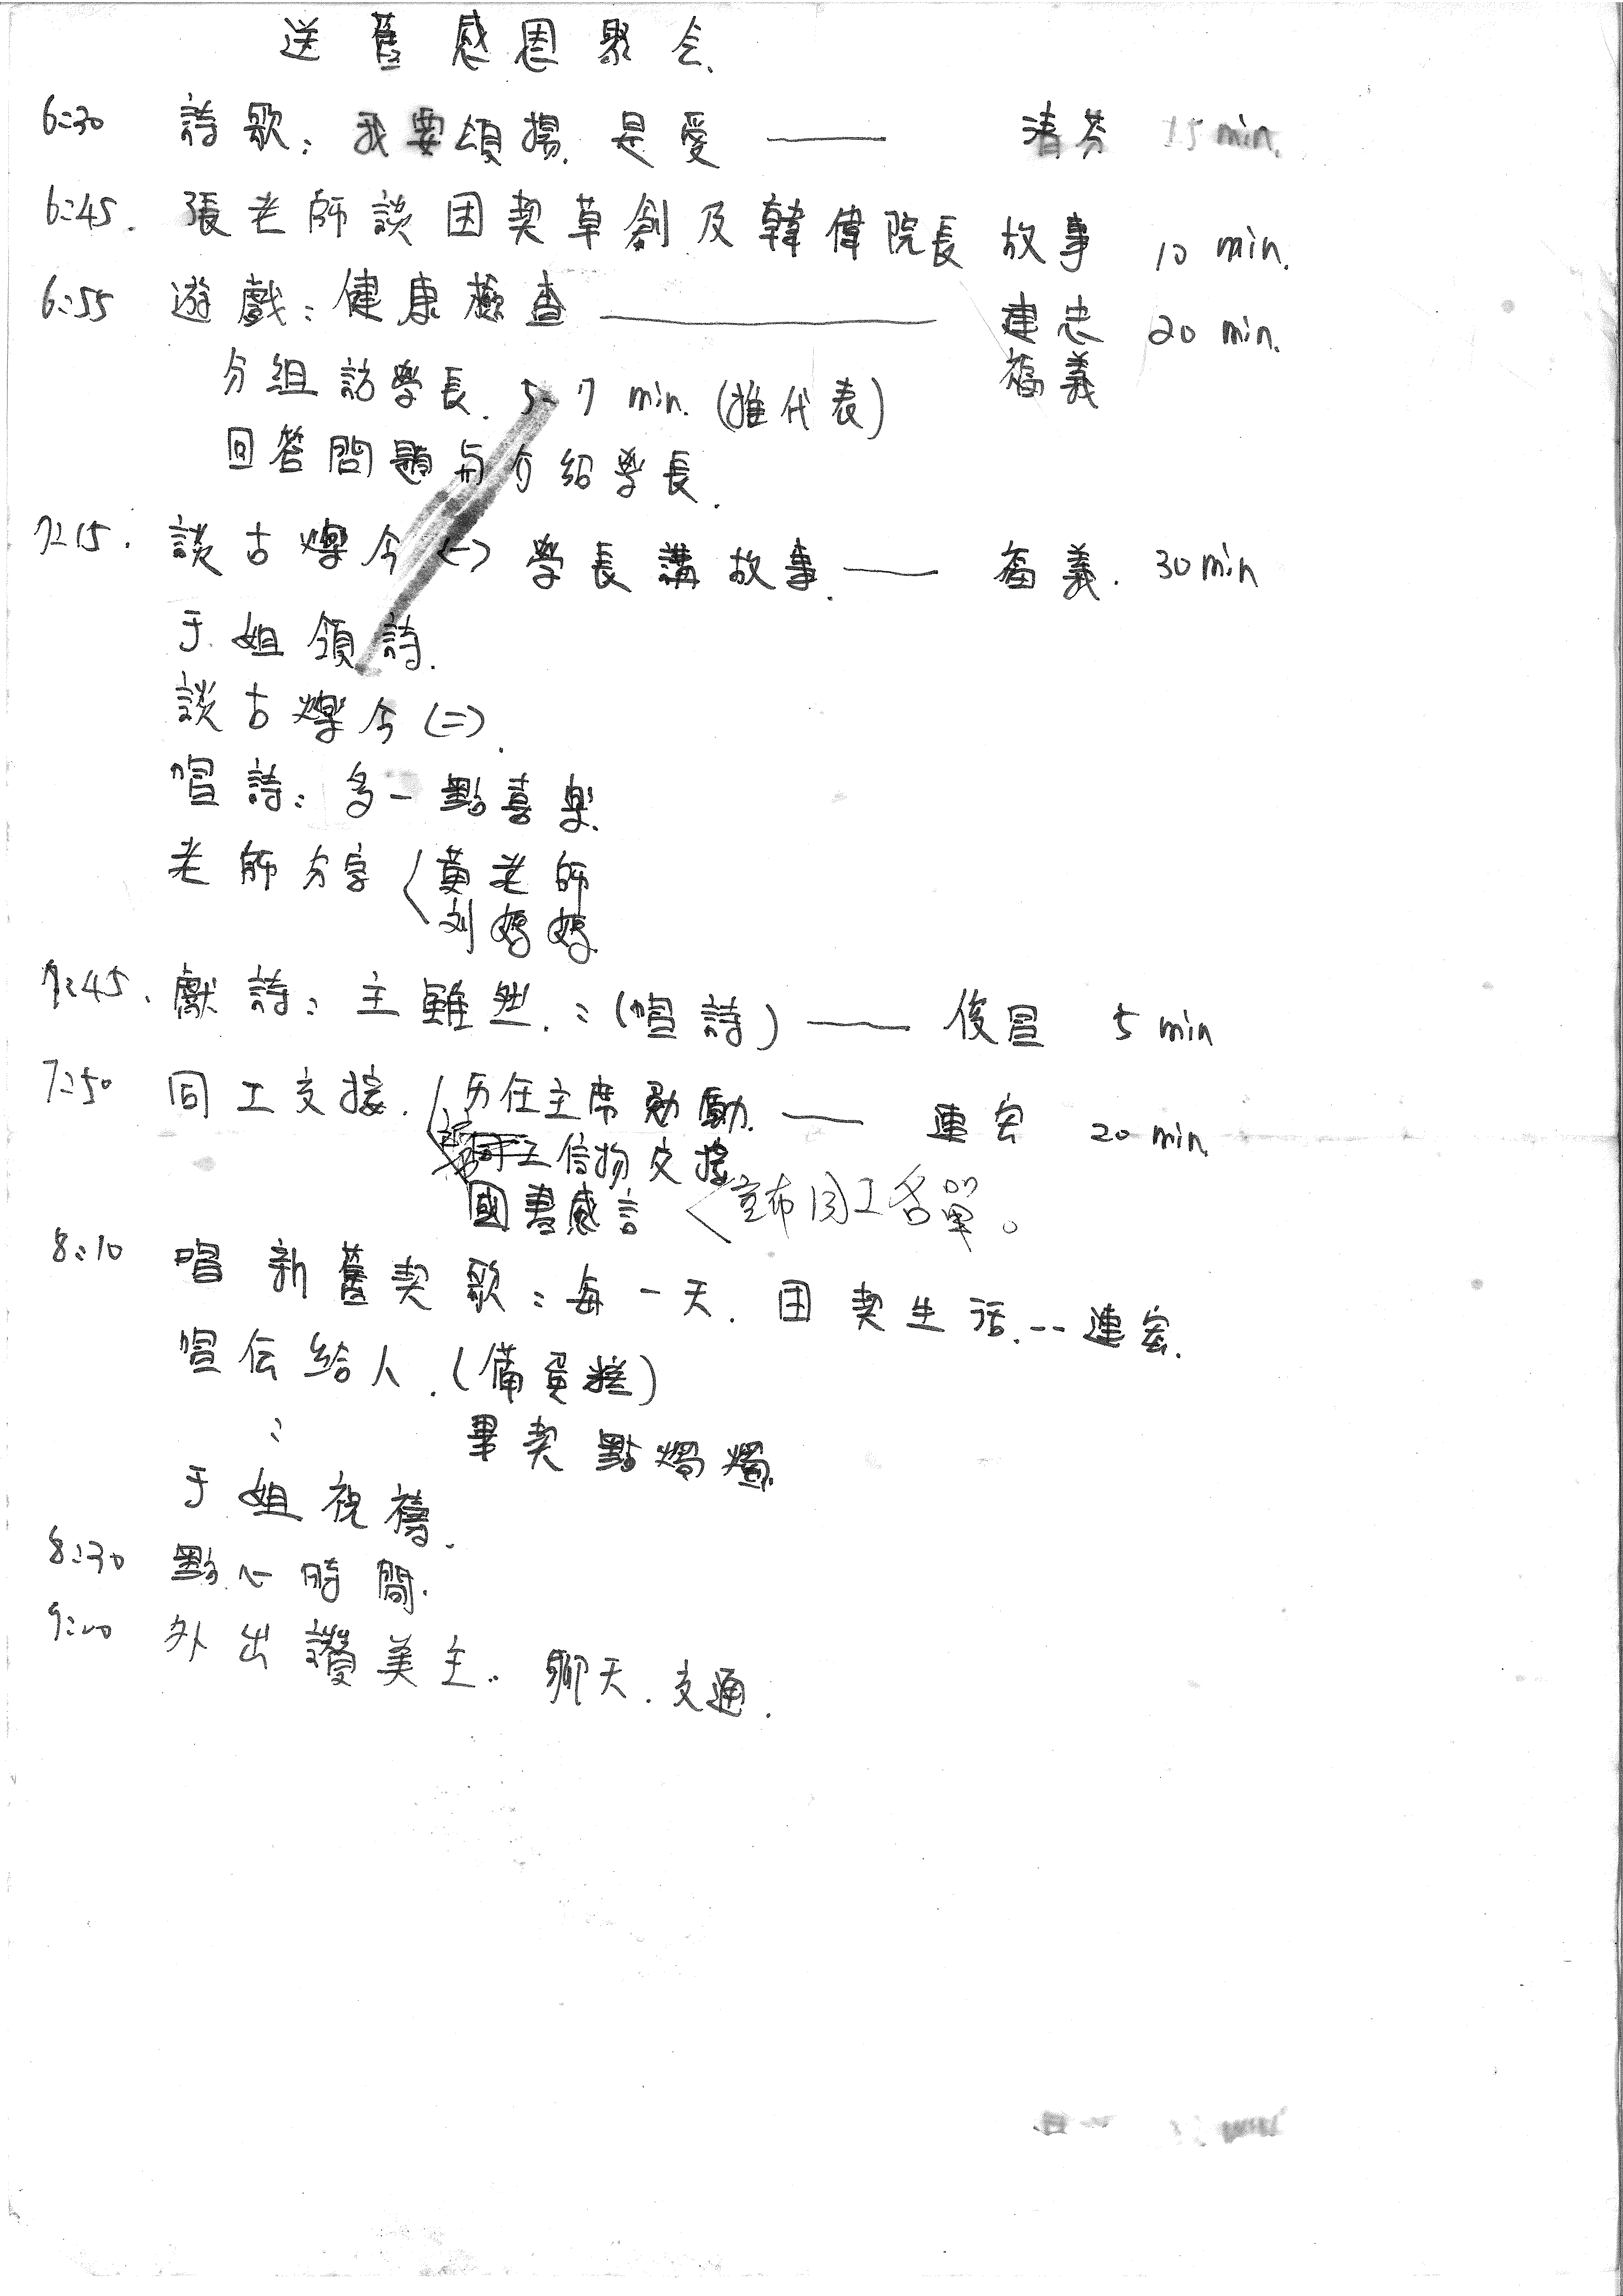 送舊感恩聚会.
6:30 詩歌: 我要頌揚. 是愛 —— 清芬 15 min.
6:45. 張老師談团契草創及韓偉院長故事 10 min.
6:55 遊戲: 健康檢查 —— 建忠 20 min.
福義
分組訪學長. 5-7 min. (推代表)
回答問題与介紹學長.
7:15. 談古爍今(一) 學長講故事. —— 福義. 30 min
于姐領詩.
談古爍今(二).
唱詩: 多一點喜樂.
老師分享 黄老師
刘媽媽
7:45. 獻詩: 主雖然. : (唱詩) —— 俊冒 5 min
7:50 同工交接. 历任主席勉勵. —— 連宏 20 min.
同工信物交接
國書感言 宣布同工名單。
8:10 唱新舊契歌: 每一天. 团契生活. -- 連宏.
唱伝給人. (備蛋糕)
:
畢契點燭燭.
于姐祝禱.
8:30 點心時間.
9:00 外出讚美主.. 聊天. 交通.